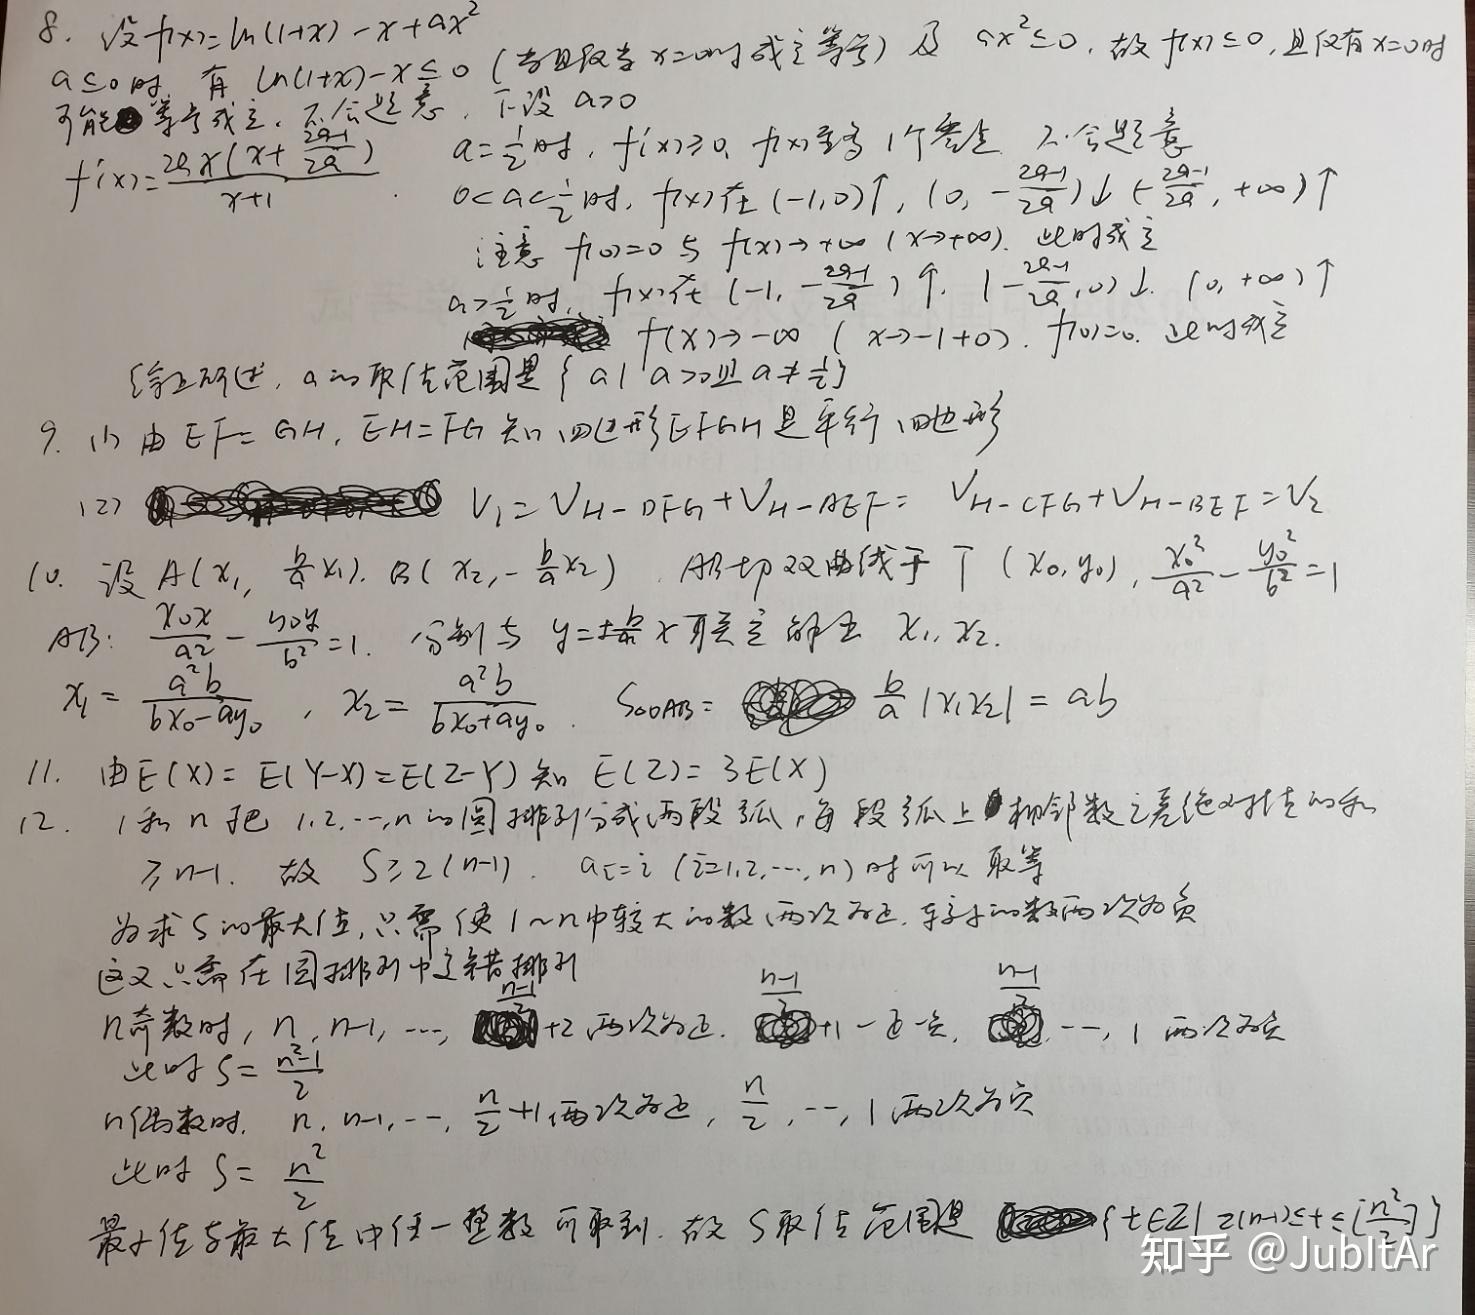 8. 设 f(x)=ln(1+x)-x+ax²
a≤0时, 有 ln(1+x)-x≤0 (当且仅当x=0时成立等号) 及 ax²≤0, 故 f(x)≤0, 且仅有x=0时
可能等号成立, 不合题意, 下设 a>0
f'(x)=2ax(x+(2a-1)/2a)/(x+1) . a=1/2时, f'(x)≥0, f(x)至多1个零点 不合题意
0<a<1/2时, f(x)在(-1,0)↑, (0, -(2a-1)/2a)↓ (-(2a-1)/2a, +∞)↑
注意 f(0)=0 与 f(x)→+∞ (x→+∞). 此时成立
a>1/2时, f(x)在 (-1, -(2a-1)/2a)↑, (-(2a-1)/2a, 0)↓, (0, +∞)↑
f(x)→-∞ (x→-1+0). f(0)=0. 此时成立
综上所述, a的取值范围是{a| a>0且a≠1/2}
9. (1) 由EF=GH, EH=FG知四边形EFGH是平行四边形
(2) V₁=V_{H-DFG}+V_{H-AEF}= V_{H-CFG}+V_{H-BEF}=V₂
10. 设A(x₁, b/a x₁). B(x₂, -b/a x₂) . AB切双曲线于T (x₀,y₀), x₀²/a²-y₀²/b²=1
AB: x₀x/a²-y₀y/b²=1. 分别与y=±b/a x联立解出 x₁, x₂.
x₁=a²b/(bx₀-ay₀) , x₂=a²b/(bx₀+ay₀) . S△OAB= b/a |x₁x₂|=ab
11. 由E(X)=E(Y-X)=E(Z-Y)知 E(Z)=3E(X)
12. 1和n把1,2,…,n的圆排列分成两段弧, 每段弧上相邻数之差绝对值的和
≥n-1. 故 S≥2(n-1). aᵢ=i (i=1,2,…,n)时可以取等
为求S的最大值, 只需使1~n中较大的数两次为正, 较小的数两次为负
这又只需在圆排列中交错排列
n奇数时, n, n-1, …, (n-1)/2+2两次为正. (n-1)/2+1一正一负, (n-1)/2, …, 1两次为负
此时S=(n²-1)/2
n偶数时. n, n-1, …, n/2+1两次为正, n/2, …, 1两次为负
此时S=n²/2
最小值与最大值中任一整数可取到. 故S取值范围是 {t∈Z| 2(n-1)≤t≤[n²/2]}
知乎 @JubItAr